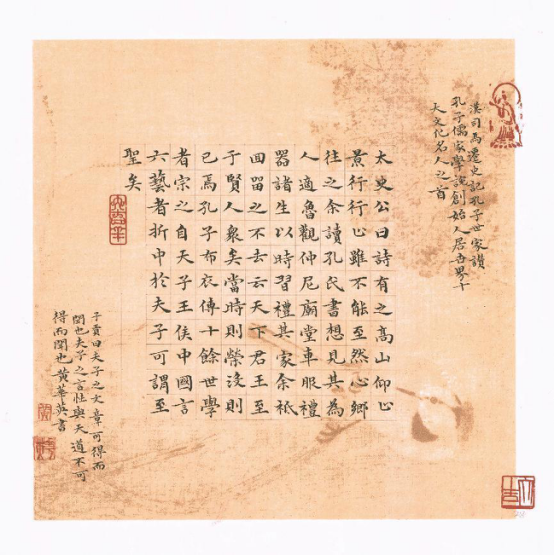 漢司馬遷史記孔子世家讚
孔子儒家學說創始人居世界十
大文化名人之首
太史公曰詩有之高山仰止
景行行止雖不能至然心鄉
往之余讀孔氏書想見其為
人適魯觀仲尼廟堂車服禮
器諸生以時習禮其家余祗
回留之不去云天下君王至
于賢人衆矣當時則榮沒則
已焉孔子布衣傳十餘世學
者宗之自天子王侯中國言
六藝者折中於夫子可謂至
聖矣
子貢曰夫子之文章可得而
聞也夫子之言性與天道不可
得而聞也黃華英書